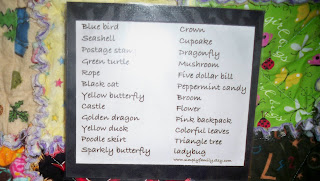 Blue bird
Seashell
Postage stan
Green turtle
Rope
Black cat
Yellow butterfly
Castle
Golden dragon
Yellow duck
Poodle skirt
Sparkly butterfly
Crown
Cupcake
Dragonfly
Mushroom
Five dollar bill
Peppermint candy
Broom
Flower
Pink backpack
Colorful leaves
Triangle tree
ladybug
www.simplyfamily.etsy.com